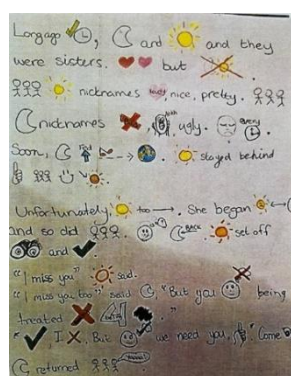 Long ago, and and they
were sisters. but
nicknames nice, pretty.
nicknames ugly. every
Soon, stayed behind
Unfortunately, too. She began
and so did BACK. set off
and
"I miss you" said.
"I miss you too" said, "But you being
treated."
" I X. But we need you, " Come
returned